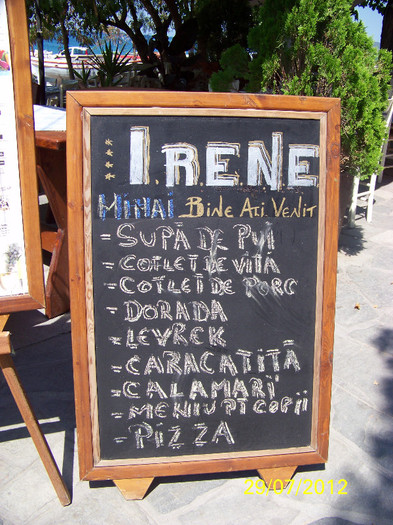 I.RENE
MIHAI BINE AȚI VENIT
- SUPĂ DE PUI
- COTLET DE VITĂ
- COTLET DE PORC
- DORADA
- LEVREK
- CARACATITĂ
- CALAMARI
- MENIU PT COPII
- PIZZA
29/07/2012